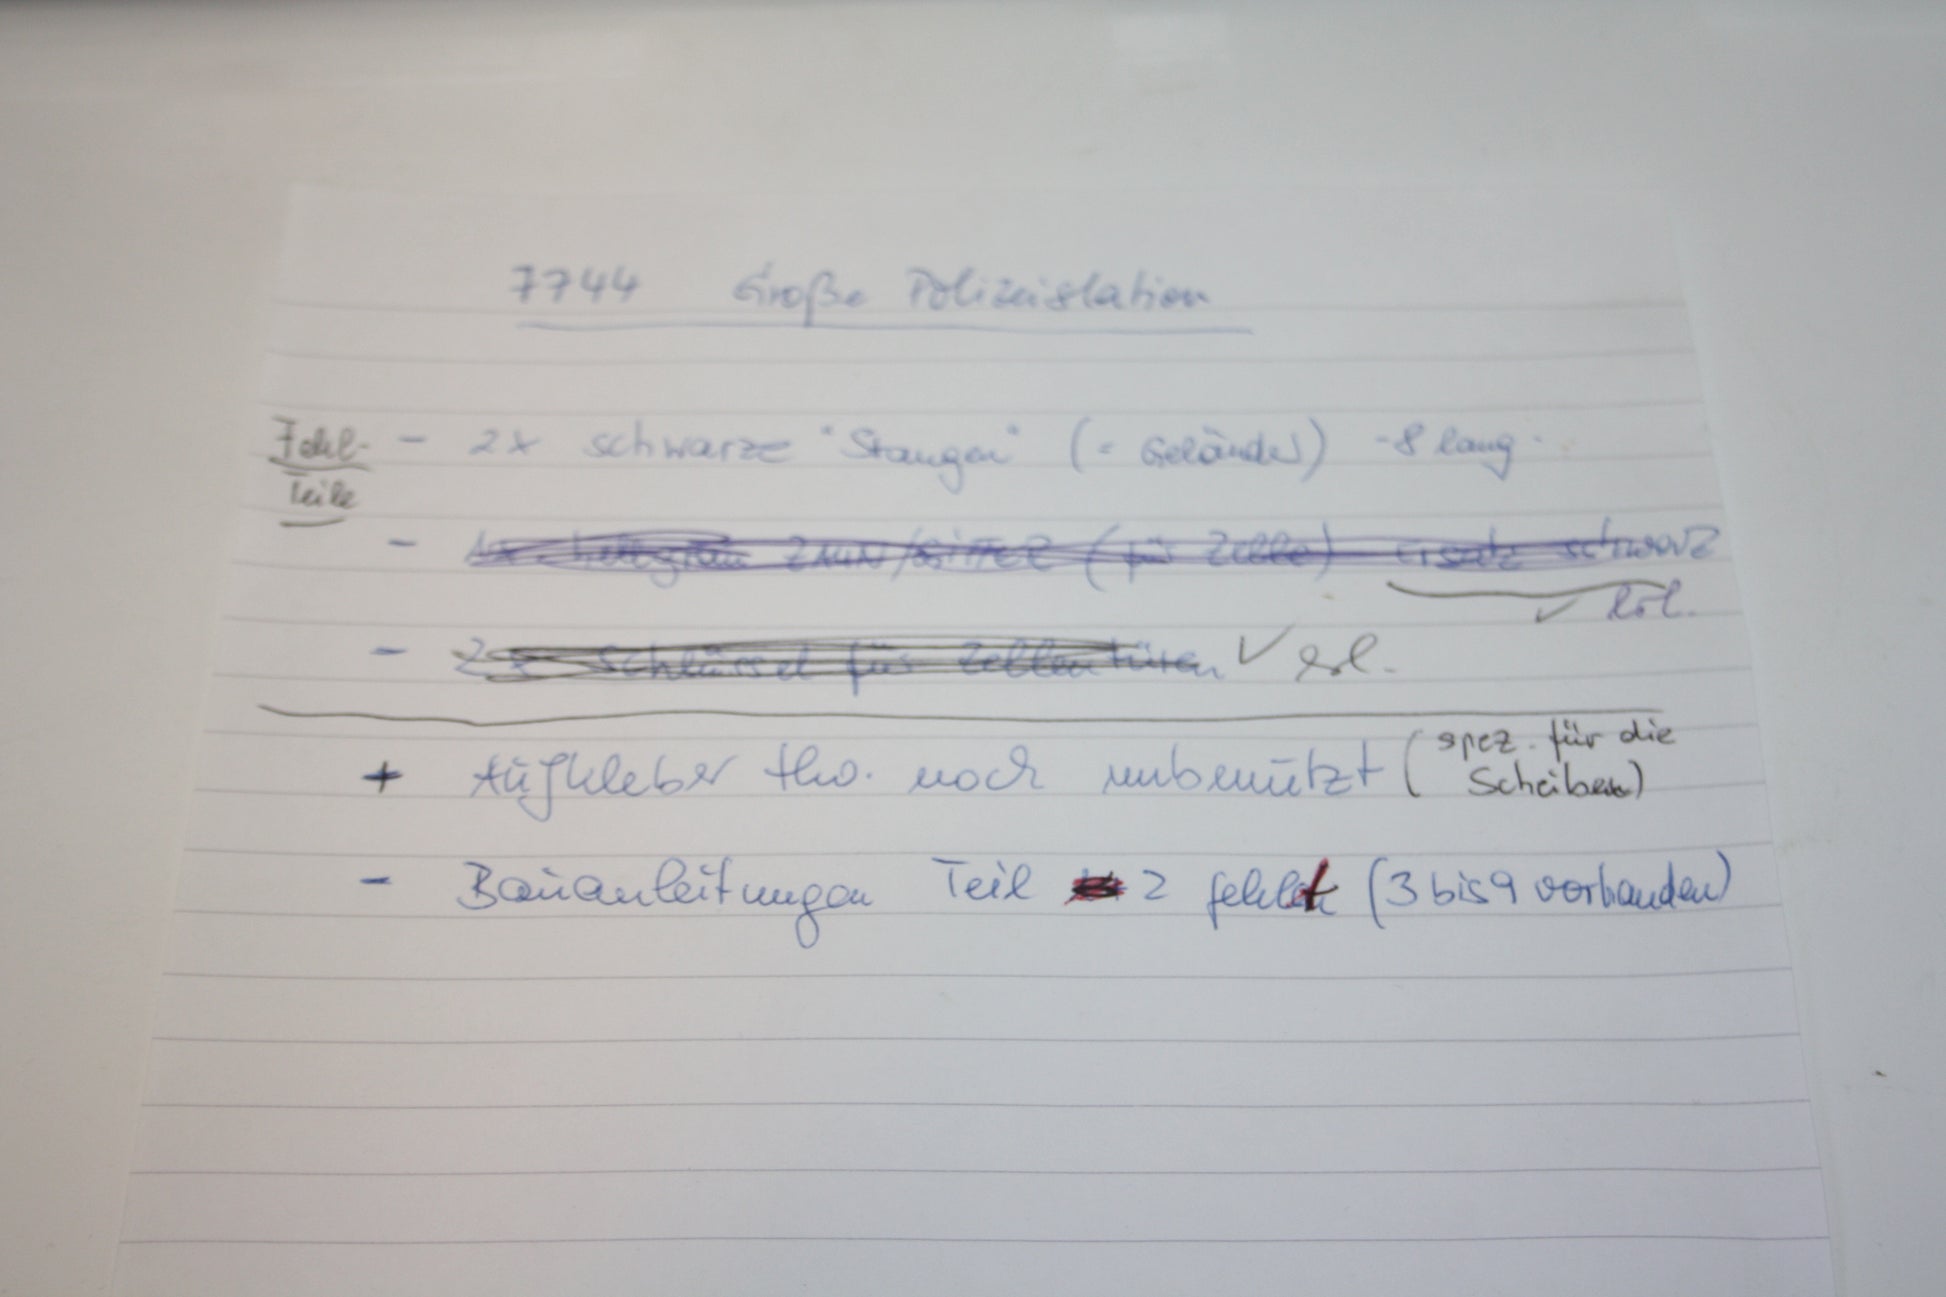 7744 Große Polizeistation
Fehl- - 2x schwarze "Stangen" (= Geländer) - 8 lang -
Teile
- 1x hellgrau ZAUN/GITTER (für Zelle) Ersatz schwarz
✓ erl.
- 2x Schlüssel für Zellentüren ✓ erl.
+ Aufkleber tlw. noch unbenützt (spez. für die
Scheiben)
- Bauanleitungen Teil 2 fehlt (3 bis 9 vorhanden)